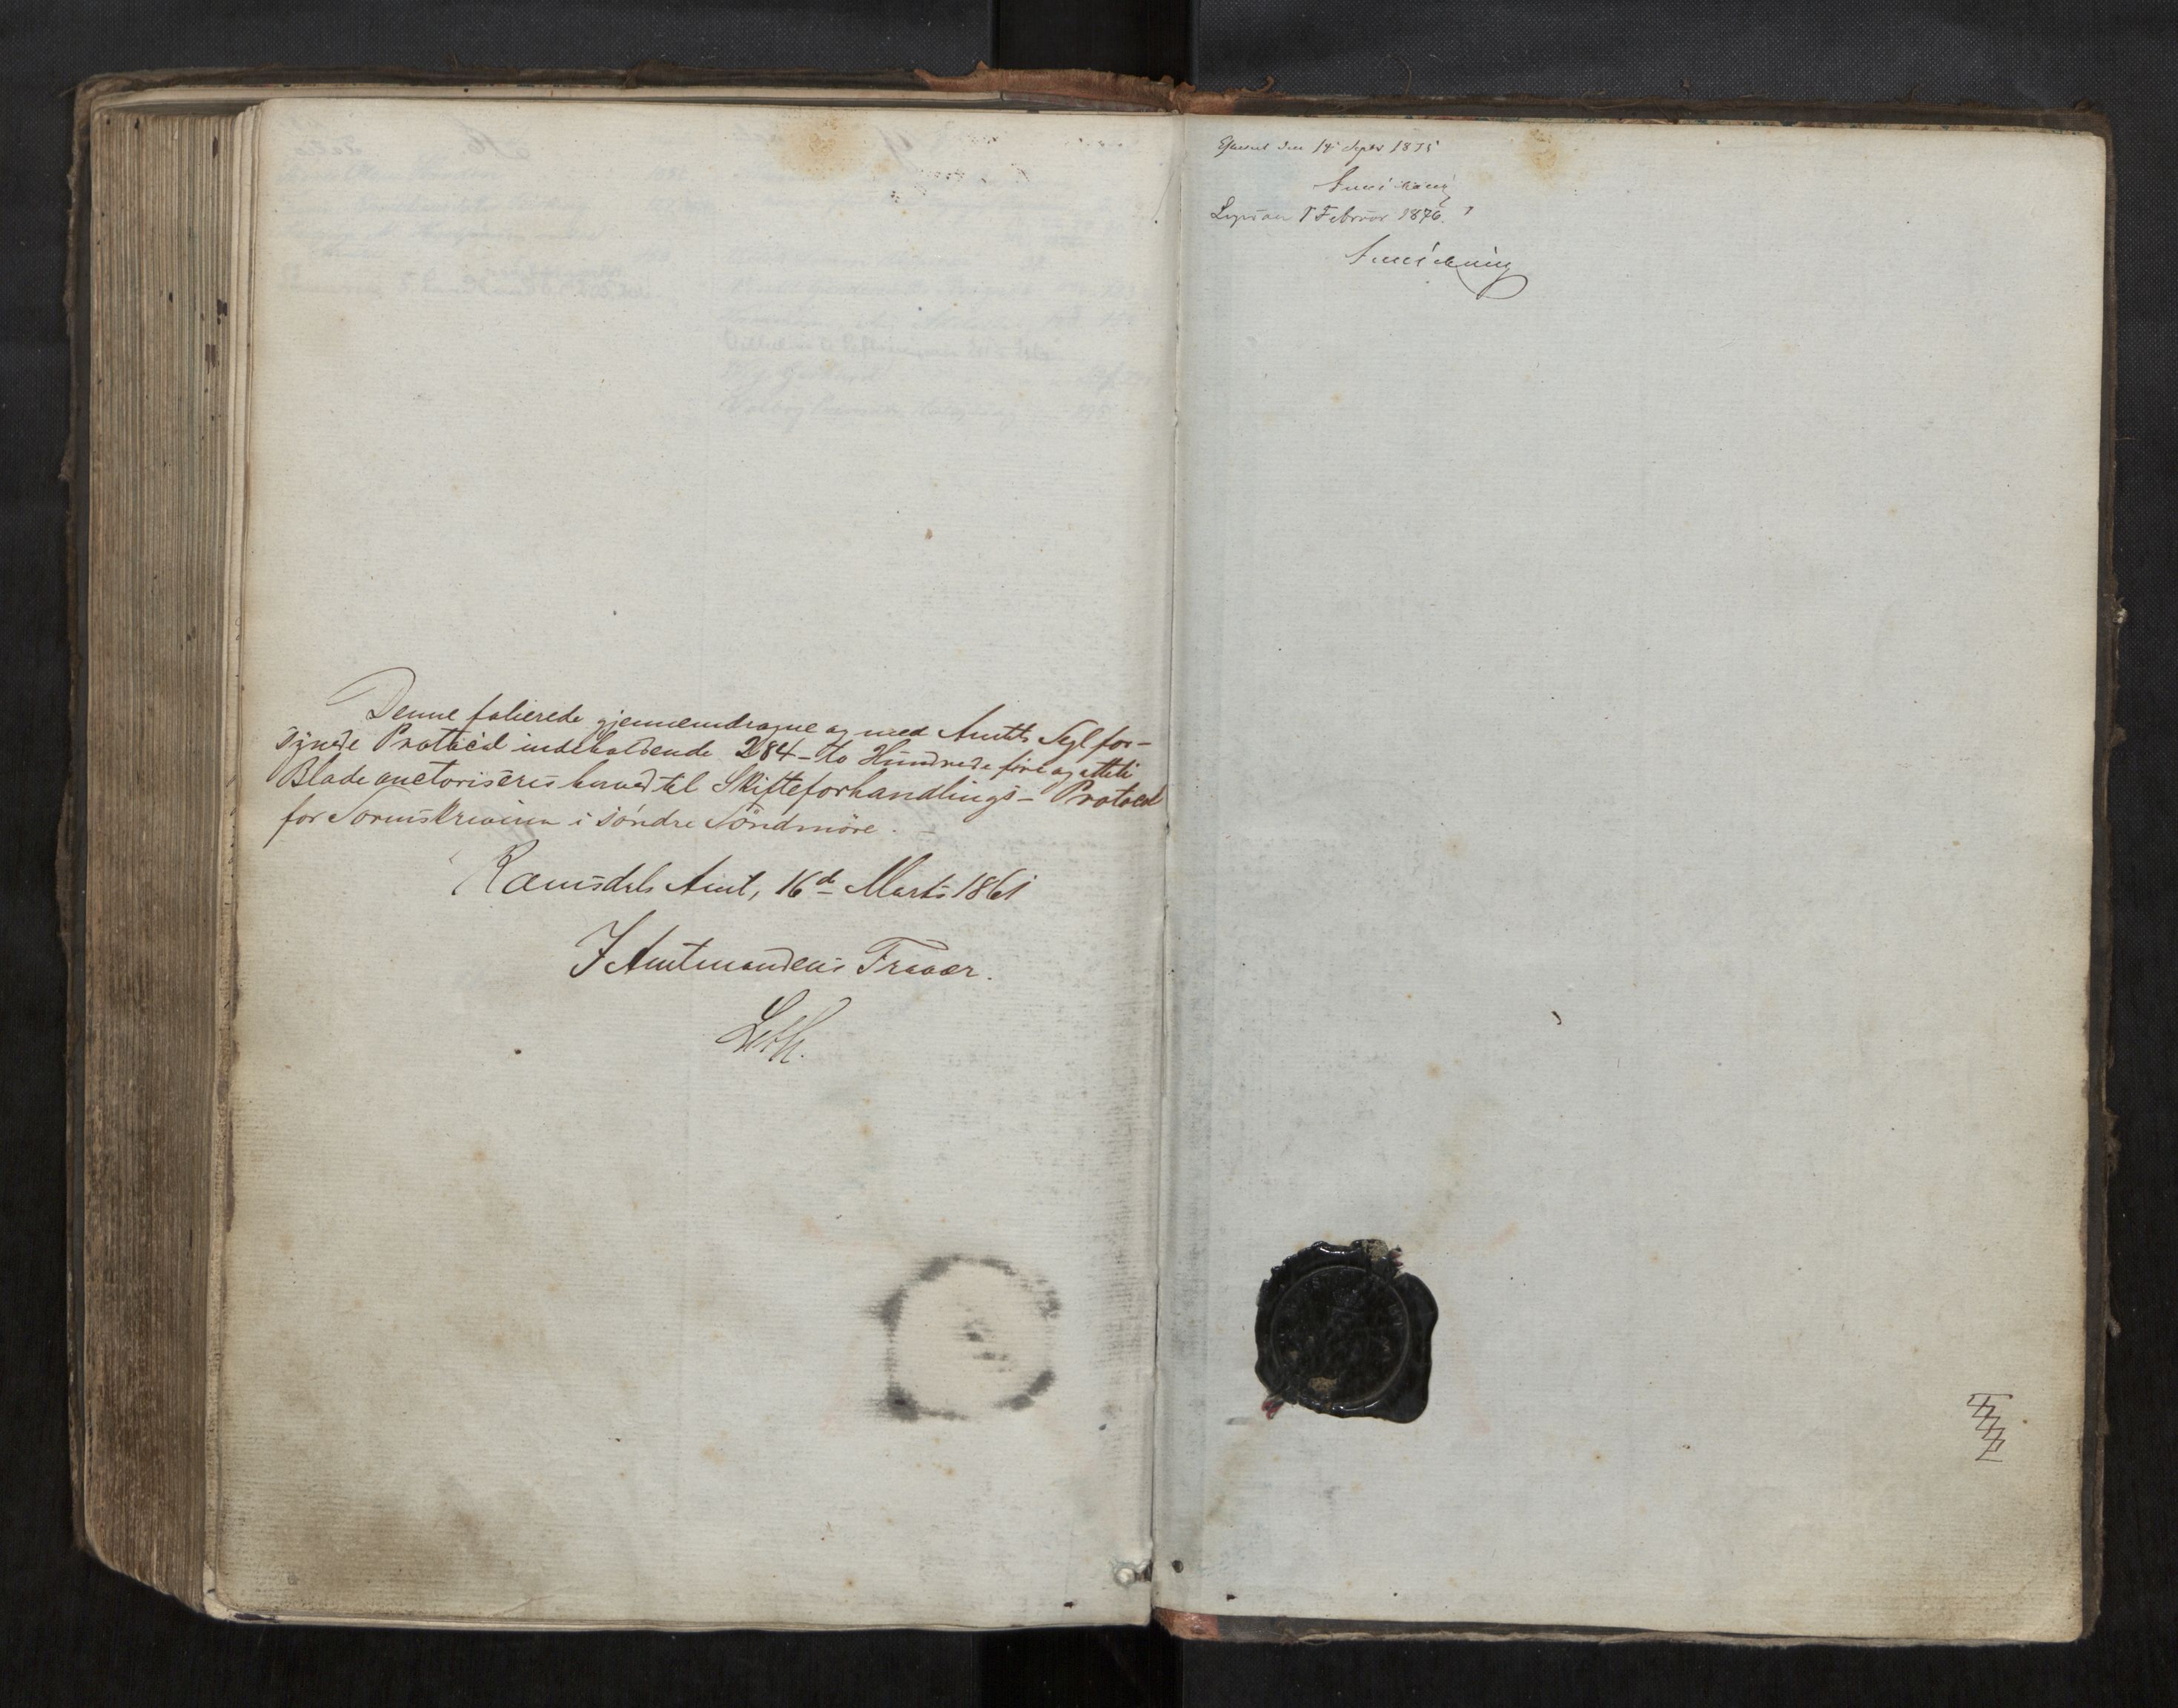 Denne folierede gjennemdragne og med Amtets Segl for-
synede Protocol indeholdende 284 - to Hundrede fire og otteti
Blade auctoriseres herved til Skifteforhandlings- Protocol
for Sorenskriveren i Søndre Søndmøre.
Romsdals Amt, 16d Marts 1861
I Amtmandens Fravær.
Leth.
den 14 Septbr 1875
1 Februar 1876.